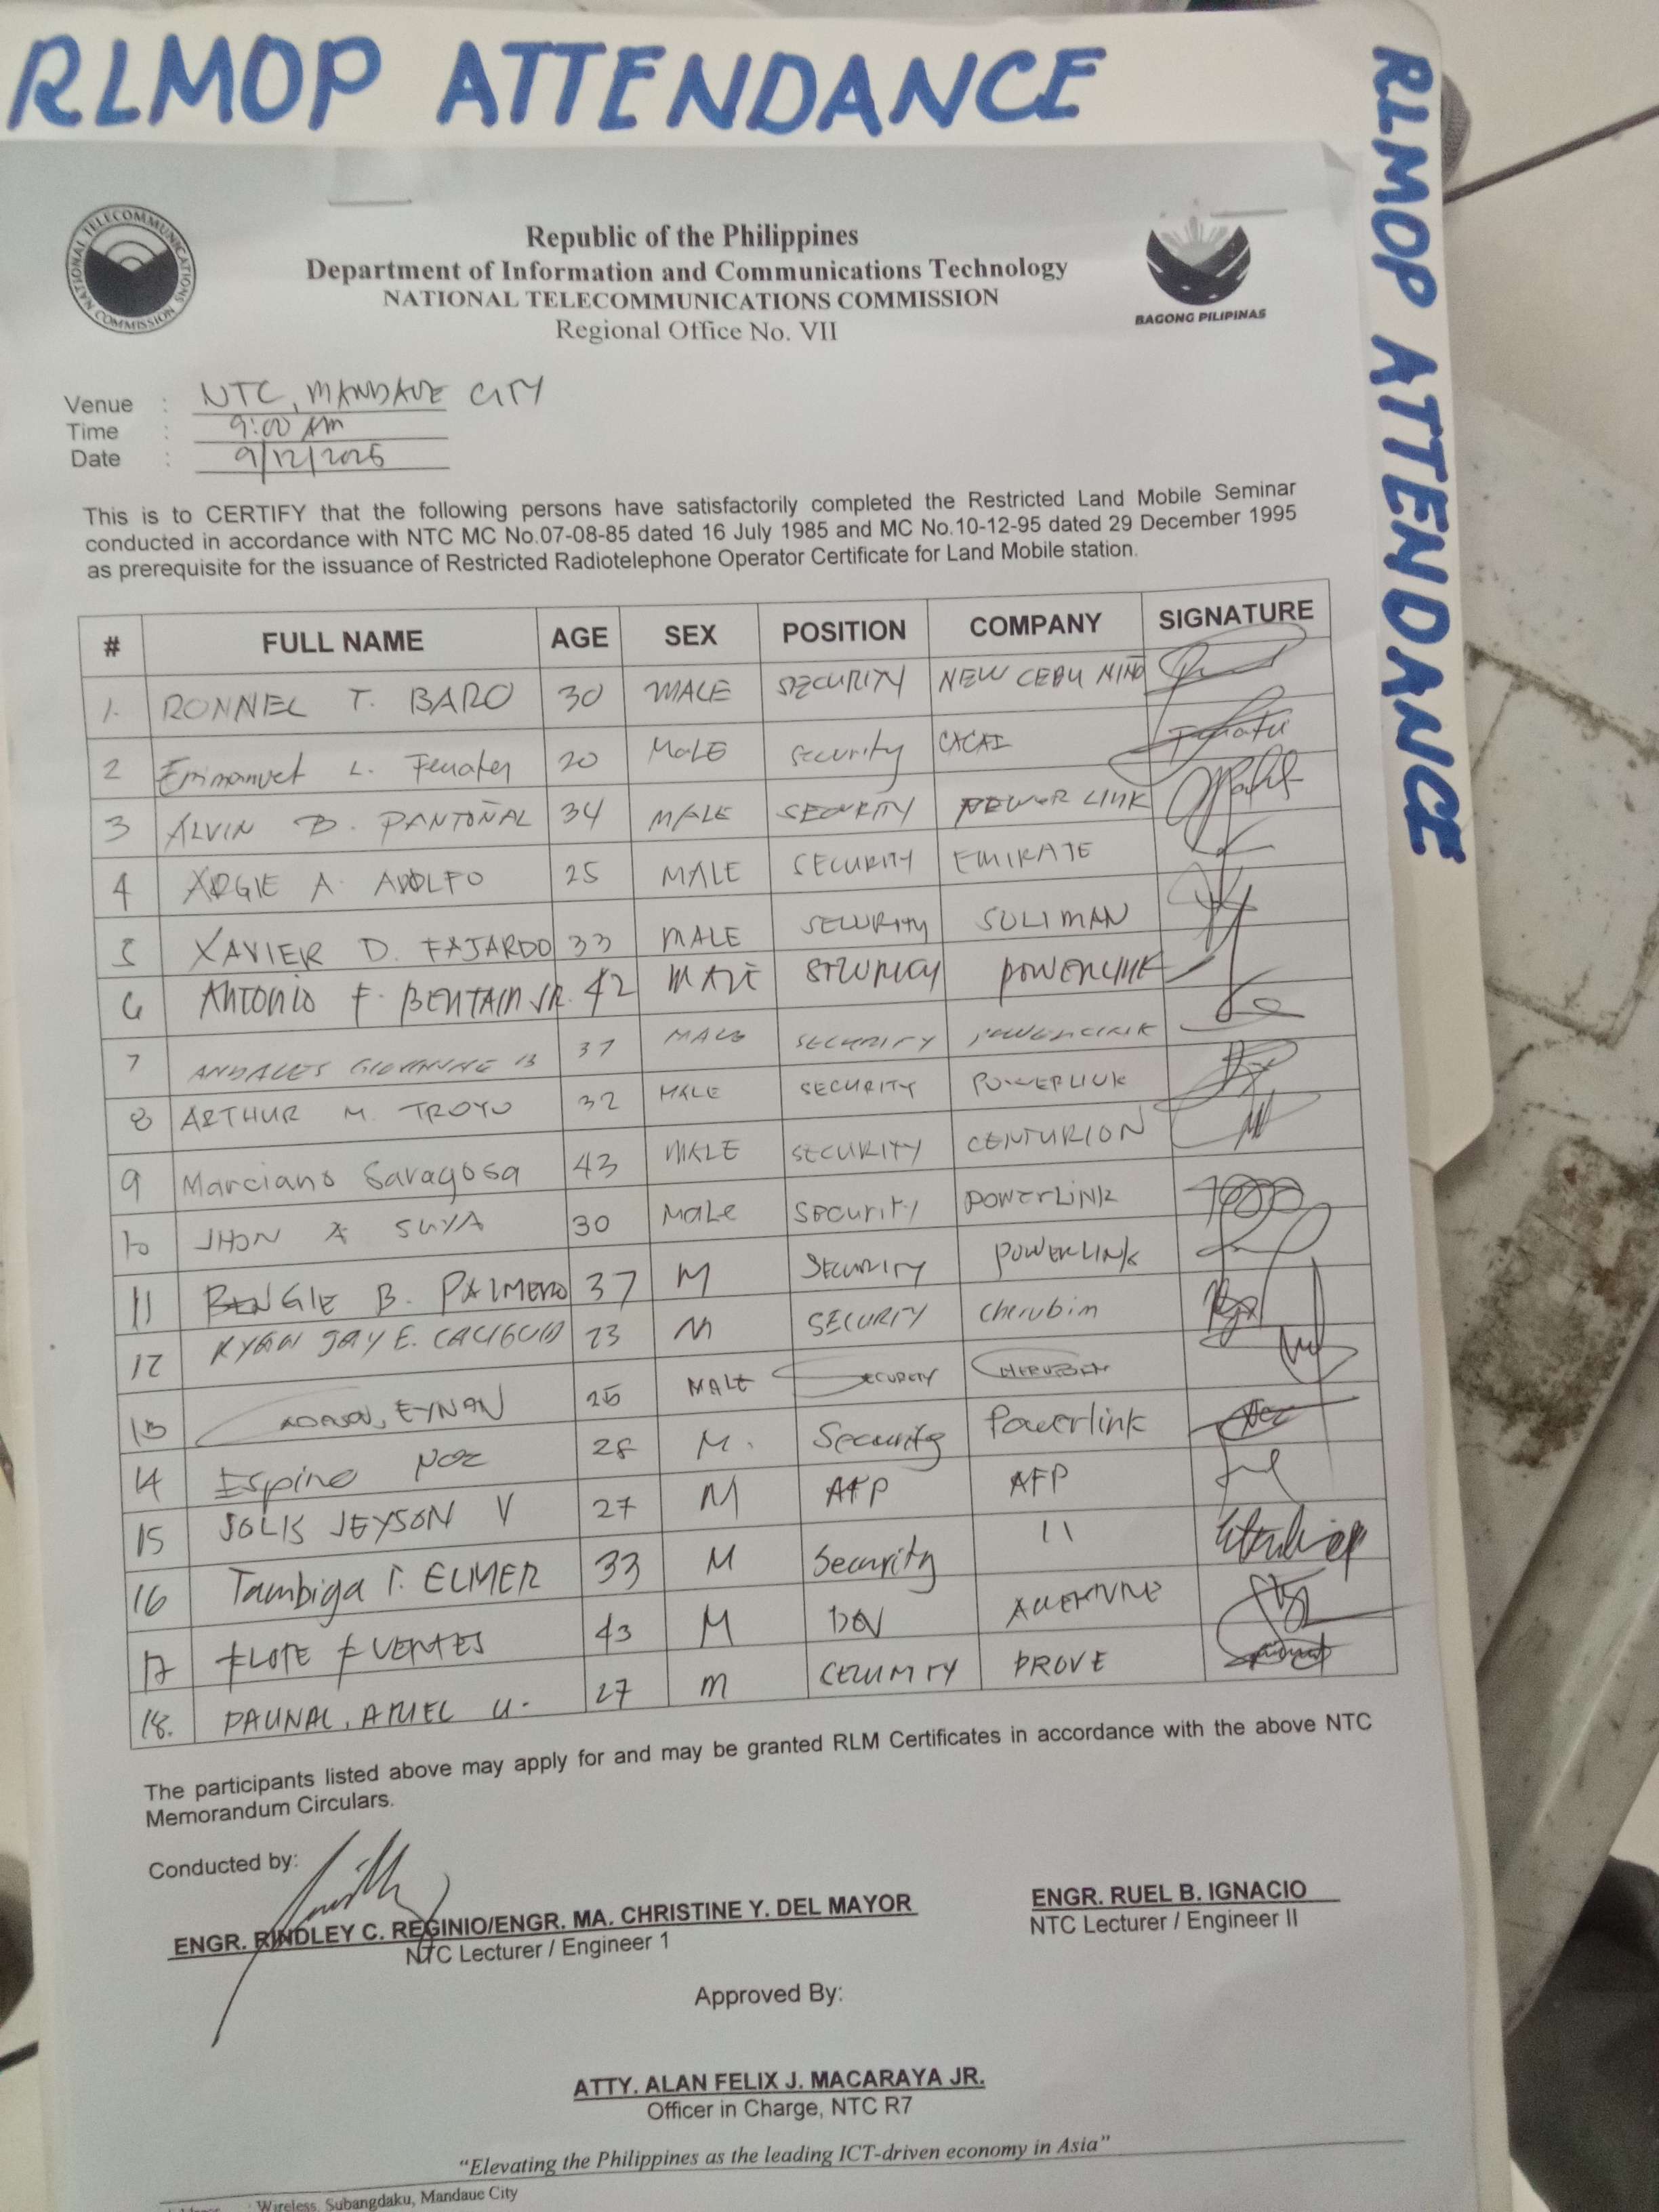 RLMOP ATTENDANCE
RLMOP ATTENDANCE
NATIONAL TELECOMMUNICATIONS COMMISSION
Republic of the Philippines
Department of Information and Communications Technology
NATIONAL TELECOMMUNICATIONS COMMISSION
Regional Office No. VII
BAGONG PILIPINAS
Venue : NTC, MANDAUE CITY
Time : 9:00 AM
Date : 9/12/2025
This is to CERTIFY that the following persons have satisfactorily completed the Restricted Land Mobile Seminar
conducted in accordance with NTC MC No.07-08-85 dated 16 July 1985 and MC No.10-12-95 dated 29 December 1995
as prerequisite for the issuance of Restricted Radiotelephone Operator Certificate for Land Mobile station.
# FULL NAME AGE SEX POSITION COMPANY SIGNATURE
1. RONNEL T. BARO 30 MALE SECURITY NEW CEBU NINO
2 Emmanuel L. 20 MaLE security
3 ALVIN B. PANTOÑAL 34 MALE SECURITY LINK
4 ARGIE A. ADOLFO 25 MALE SECURITY EMIRATE
5 XAVIER D. FAJARDO 33 MALE SECURITY SULIMAN
6 ANTONIO F. BENTAIN JR. 42 MALE SECURITY POWERLINK
7 ANDALES B 37 MALE SECURITY POWERLINK
8 ARTHUR M. TROYO 32 MALE SECURITY POWERLINK
9 Marciano Saragosa 43 MALE SECURITY CENTURION
10 JHON A SUYA 30 MaLe SECURITY POWERLINK
11 BENGIE B. PALMERO 37 M SECURITY POWERLINK
12 RYAN JAY E. 23 M SECURITY cherubim
13 EYNAN 25 MALE SECURITY CHERUBIM
14 Espino Noe 28 M. Security Powerlink
15 SOLIS JEYSON V 27 M AFP AFP
16 Tambiga T. ELMER 33 M Security 11
17 FLOTE FUENTES 43 M
18. PAUNAL, ARIEL U. 27 m CECURITY PROVE
The participants listed above may apply for and may be granted RLM Certificates in accordance with the above NTC
Memorandum Circulars.
Conducted by:
ENGR. RINDLEY C. REGINIO/ENGR. MA. CHRISTINE Y. DEL MAYOR
NTC Lecturer / Engineer 1
ENGR. RUEL B. IGNACIO
NTC Lecturer / Engineer II
Approved By:
ATTY. ALAN FELIX J. MACARAYA JR.
Officer in Charge, NTC R7
"Elevating the Philippines as the leading ICT-driven economy in Asia"
: Wireless, Subangdaku, Mandaue City